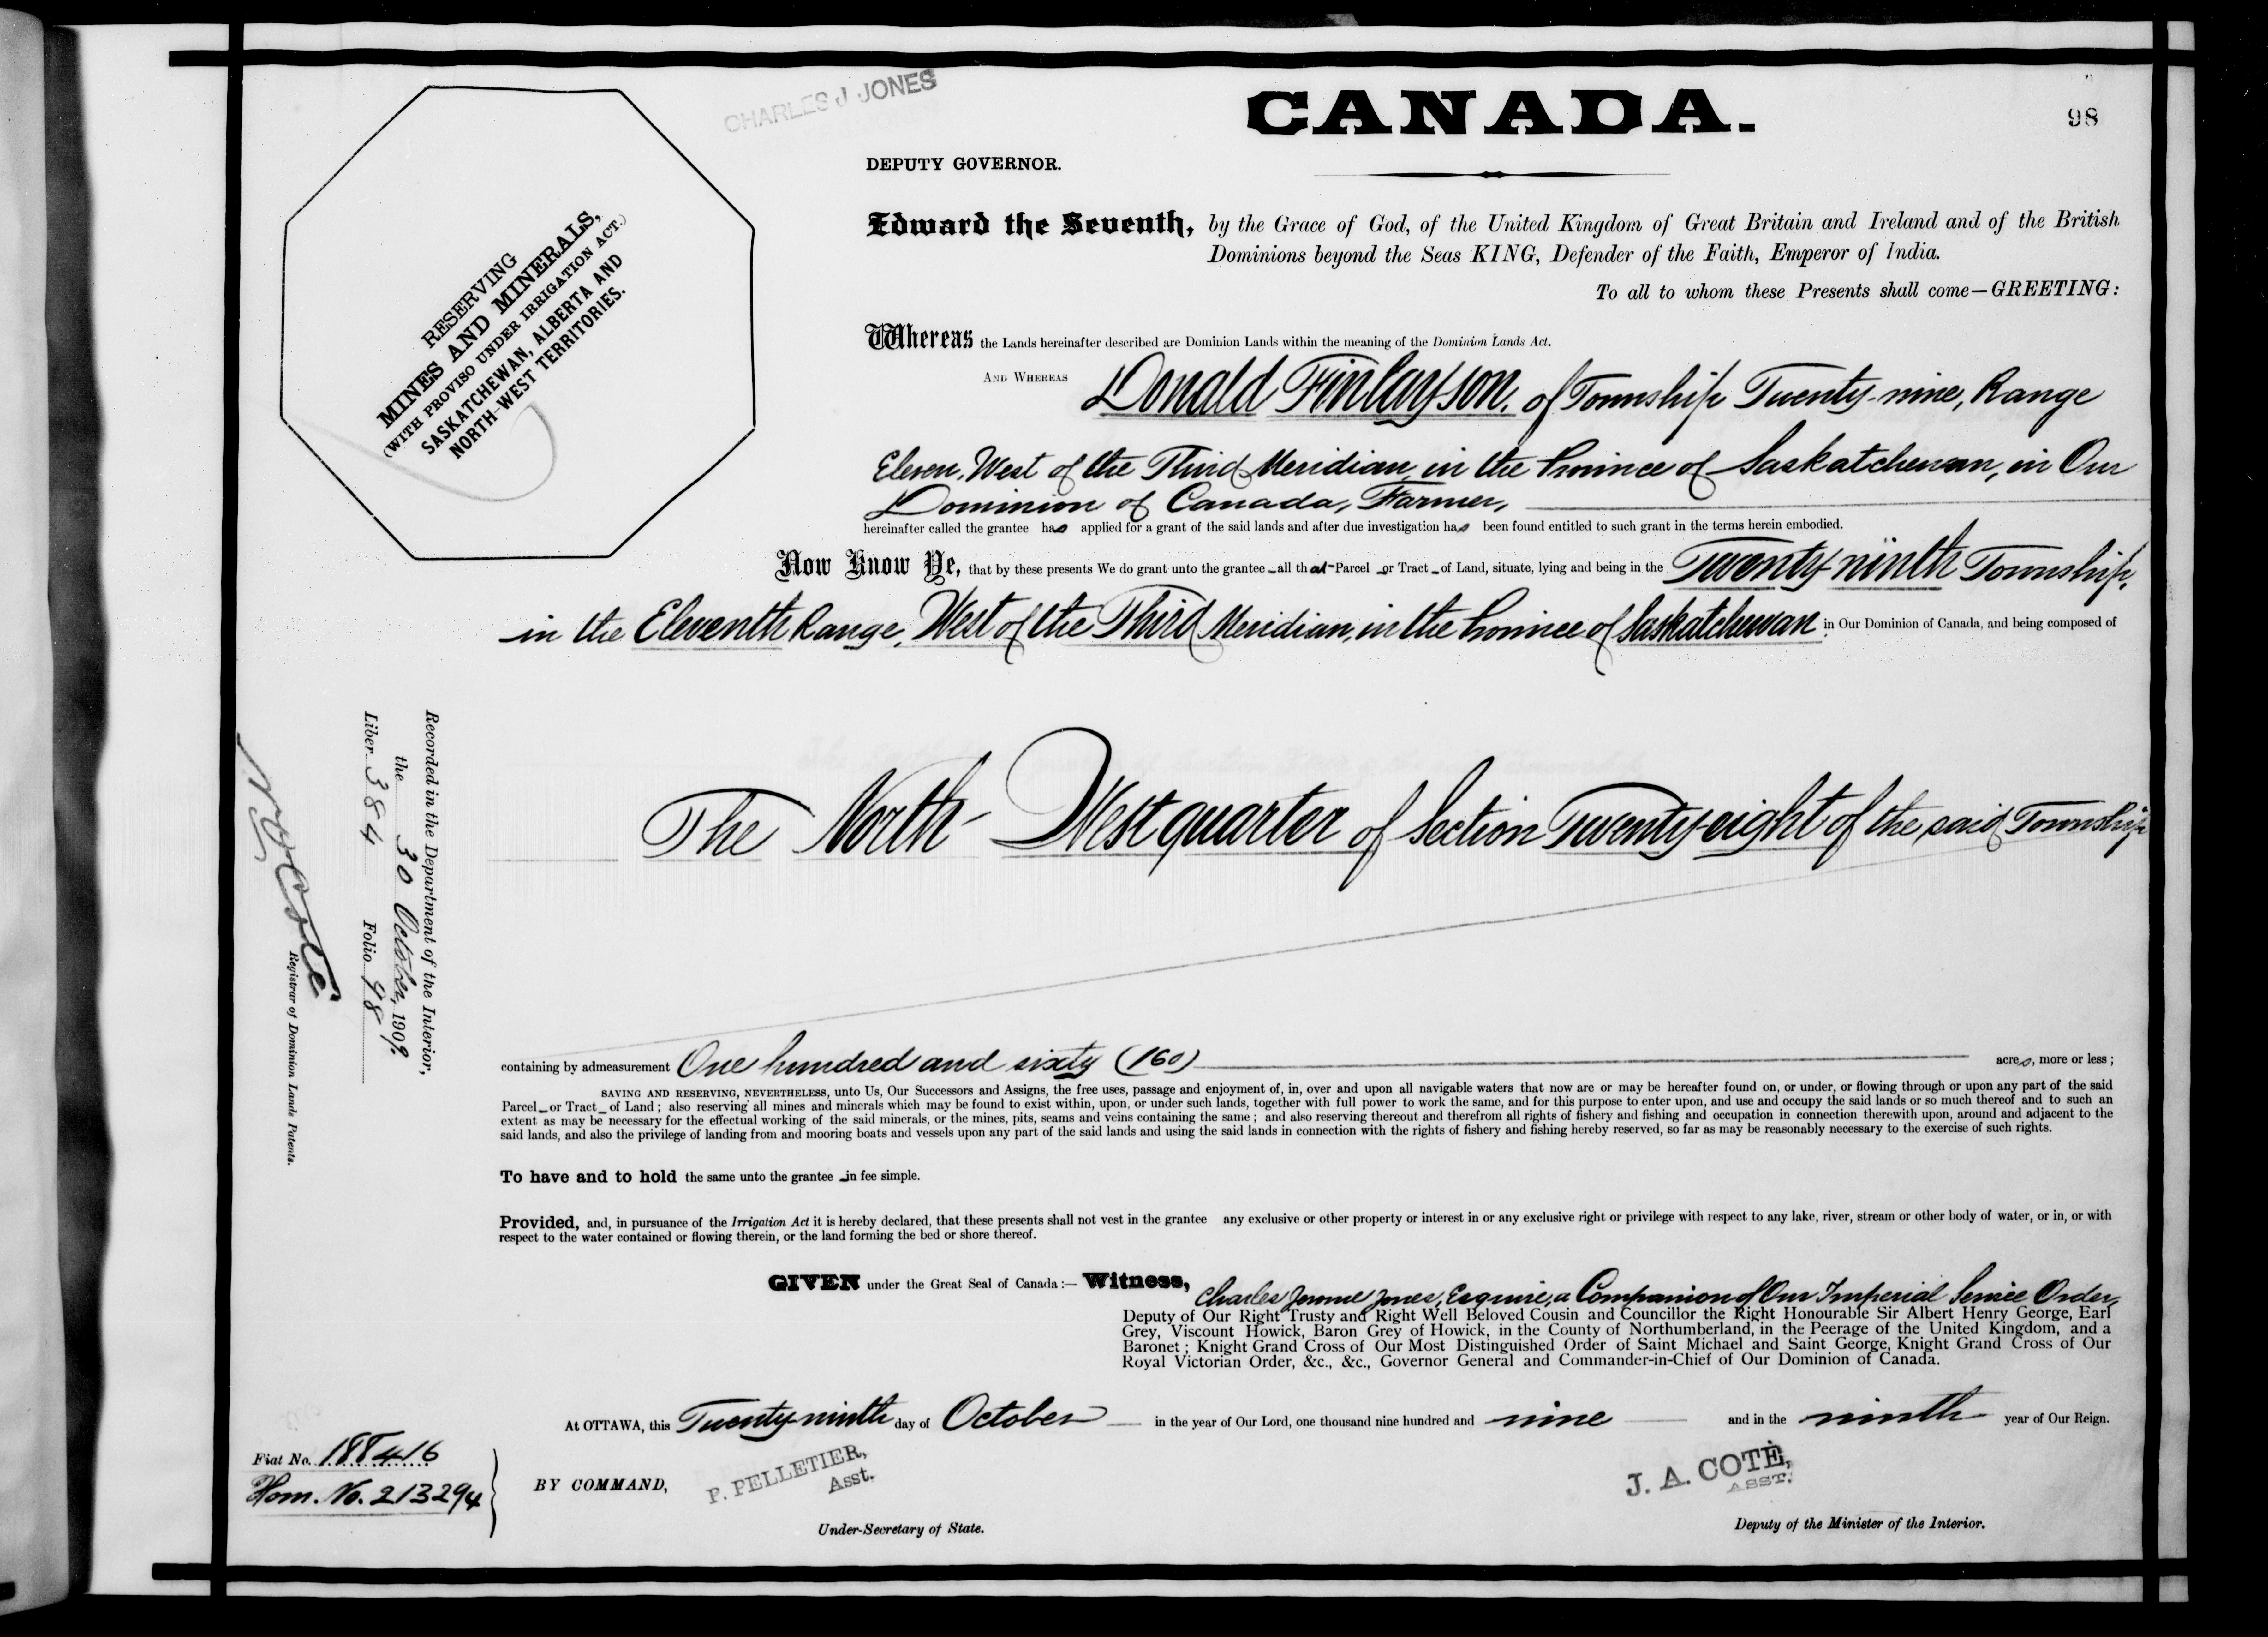 CHARLES J JONES
CANADA.
98
DEPUTY GOVERNOR.
RESERVING
MINES AND MINERALS,
(WITH PROVISO UNDER IRRIGATION ACT.)
SASKATCHEWAN, ALBERTA AND
NORTH-WEST TERRITORIES.
Edward the Seventh, by the Grace of God, of the United Kingdom of Great Britain and Ireland and of the British
Dominions beyond the Seas KING, Defender of the Faith, Emperor of India.
To all to whom these Presents shall come—GREETING:
Whereas the Lands hereinafter described are Dominion Lands within the meaning of the Dominion Lands Act.
AND WHEREAS Donald Finlayson, of Township Twenty-nine, Range
Eleven, West of the Third Meridian, in the Province of Saskatchewan, in Our
Dominion of Canada, Farmer,
hereinafter called the grantee has applied for a grant of the said lands and after due investigation has been found entitled to such grant in the terms herein embodied.
Now Know Ye, that by these presents We do grant unto the grantee all that Parcel or Tract of Land, situate, lying and being in the Twenty ninth Township,
in the Eleventh Range, West of the Third Meridian, in the Province of Saskatchewan in Our Dominion of Canada, and being composed of
The North-West quarter of Section Twenty-eight of the said Township
containing by admeasurement One hundred and sixty (160) acres, more or less;
SAVING AND RESERVING, NEVERTHELESS, unto Us, Our Successors and Assigns, the free uses, passage and enjoyment of, in, over and upon all navigable waters that now are or may be hereafter found on, or under, or flowing through or upon any part of the said
Parcel or Tract of Land; also reserving all mines and minerals which may be found to exist within, upon, or under such lands, together with full power to work the same, and for this purpose to enter upon, and use and occupy the said lands or so much thereof and to such an
extent as may be necessary for the effectual working of the said minerals, or the mines, pits, seams and veins containing the same; and also reserving thereout and therefrom all rights of fishery and fishing and occupation in connection therewith upon, around and adjacent to the
said lands, and also the privilege of landing from and mooring boats and vessels upon any part of the said lands and using the said lands in connection with the rights of fishery and fishing hereby reserved, so far as may be reasonably necessary to the exercise of such rights.
To have and to hold the same unto the grantee in fee simple.
Provided, and, in pursuance of the Irrigation Act it is hereby declared, that these presents shall not vest in the grantee any exclusive or other property or interest in or any exclusive right or privilege with respect to any lake, river, stream or other body of water, or in, or with
respect to the water contained or flowing therein, or the land forming the bed or shore thereof.
GIVEN under the Great Seal of Canada:— Witness, Charles Jones, Esquire, a Companion of Our Imperial Service Order,
Deputy of Our Right Trusty and Right Well Beloved Cousin and Councillor the Right Honourable Sir Albert Henry George, Earl
Grey, Viscount Howick, Baron Grey of Howick, in the County of Northumberland, in the Peerage of the United Kingdom, and a
Baronet; Knight Grand Cross of Our Most Distinguished Order of Saint Michael and Saint George, Knight Grand Cross of Our
Royal Victorian Order, &c., &c., Governor General and Commander-in-Chief of Our Dominion of Canada.
At OTTAWA, this Twenty-ninth day of October in the year of Our Lord, one thousand nine hundred and nine and in the ninth year of Our Reign.
BY COMMAND,
P. PELLETIER,
Asst.
Under-Secretary of State.
J. A. COTÉ,
ASST.
Deputy of the Minister of the Interior.
Fiat No. 188416
Hom. No. 213294
Recorded in the Department of the Interior,
the 30 October, 1909.
Liber 384 Folio 98
N. O. Coté
Registrar of Dominion Lands Patents.